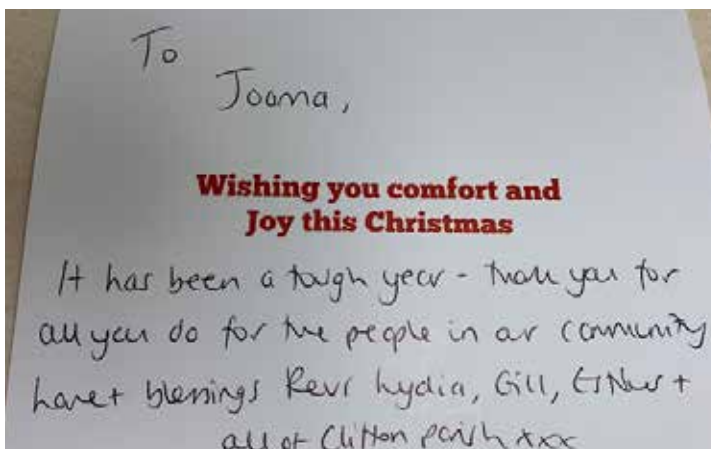 To
Joanna,
Wishing you comfort and
Joy this Christmas
It has been a tough year - thank you for
all you do for the people in our community
Love + blessings Revs Lydia, Gill, +
all of Clifton parish xxx